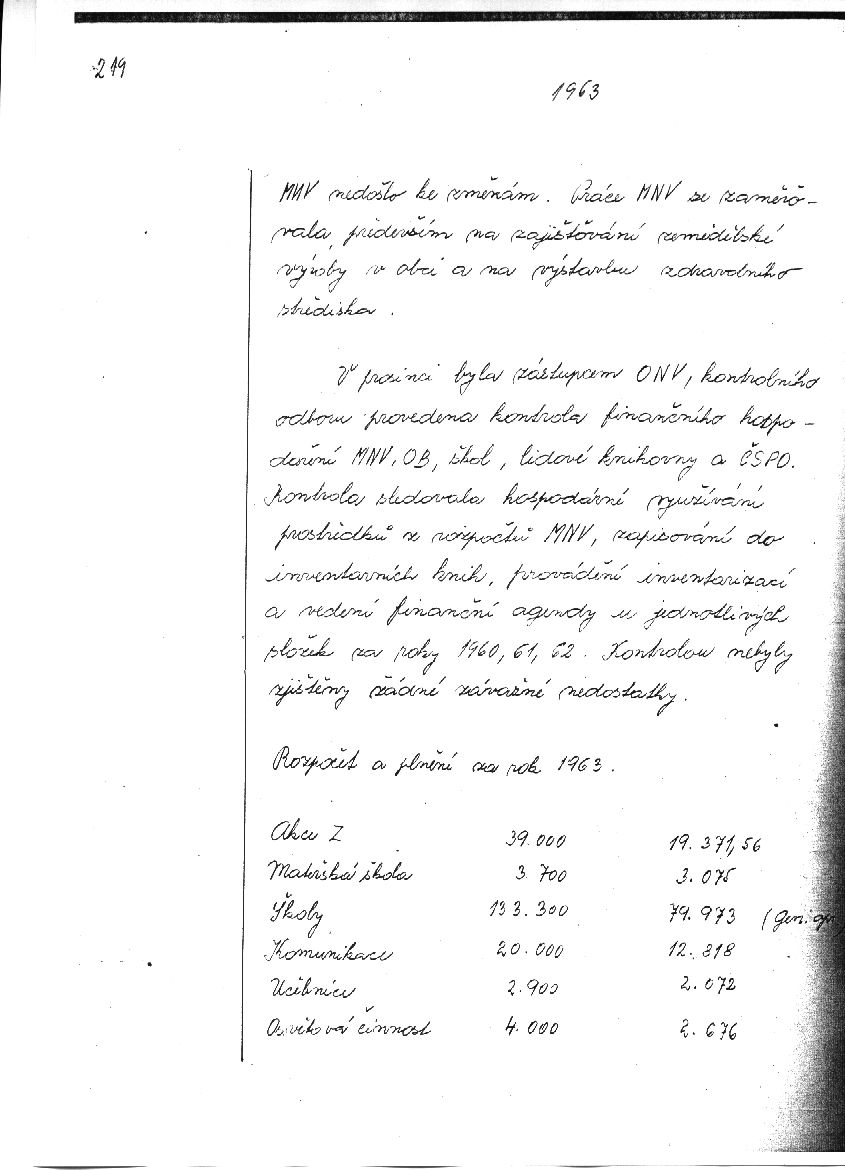 219
1963
MNV nedošlo ke změnám. Práce MNV se zaměřo-
vala především na zajišťování zemědělské
výroby v obci a na výstavbu zdravotního
střediska.
V prosinci byla zástupcem ONV, kontrolního
odboru provedena kontrola finančního hospo-
daření MNV, OB, škol, lidové knihovny a ČSPO.
Kontrola sledovala hospodárné využívání
prostředků z rozpočtů MNV, zapisování do
inventárních knih, provádění inventarizací
a vedení finanční agendy u jednotlivých
složek za roky 1960, 61, 62. Kontrolou nebyly
zjištěny žádné závažné nedostatky.
Rozpočet a plnění za rok 1963.
Akce Z 39.000 19.371,56
Mateřská škola 3.700 3.075
Školy 133.300 79.973 (Gen. opr
Komunikace 20.000 12.818
Učebnice 2.900 2.072
Osvětová činnost 4.000 2.676